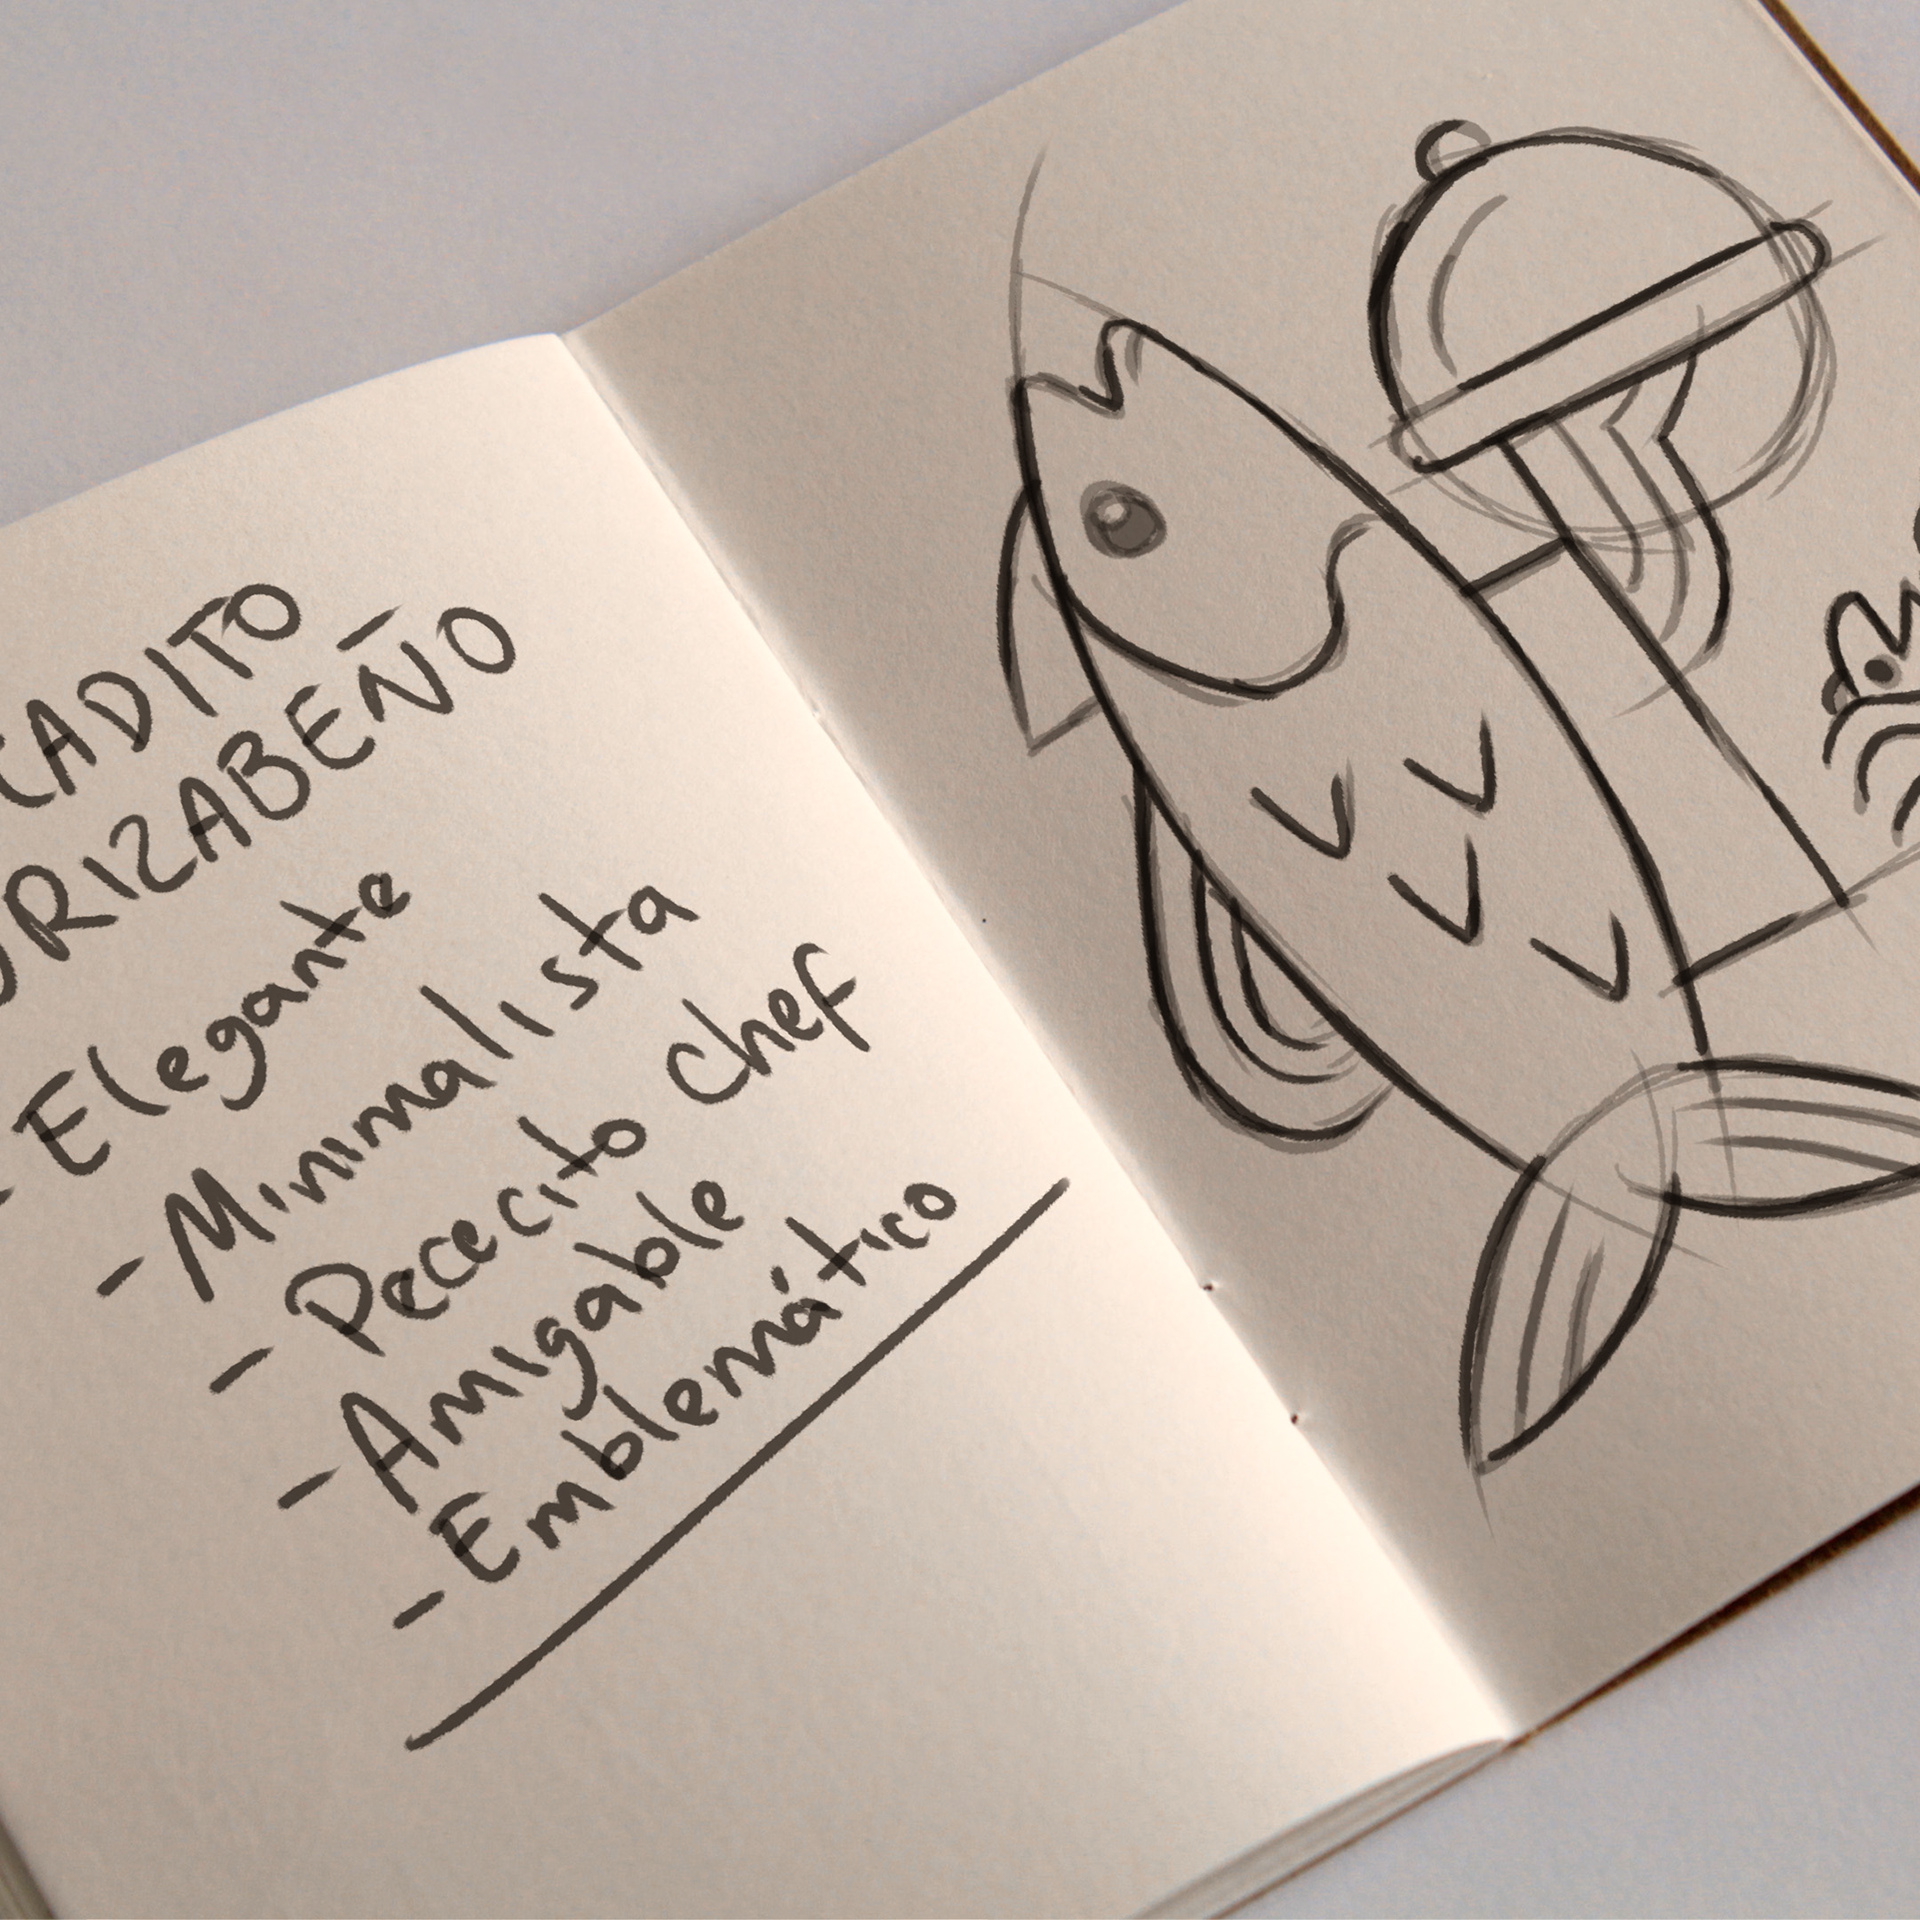 CADITO
ORIZABEÑO
- Elegante
- Minimalista
- Pececito Chef
- Amigable
- Emblemático